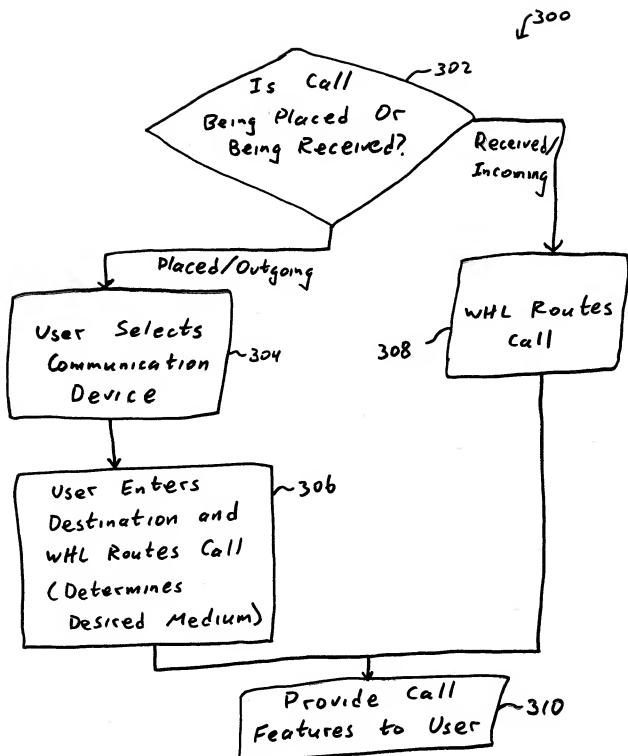 300
302
Is Call
Being Placed Or
Being Received?
Received/
Incoming
Placed/Outgoing
User Selects
Communication
Device
304
WHL Routes
Call
308
User Enters
Destination and
WHL Routes Call
(Determines
Desired Medium)
306
Provide Call
Features to User
310